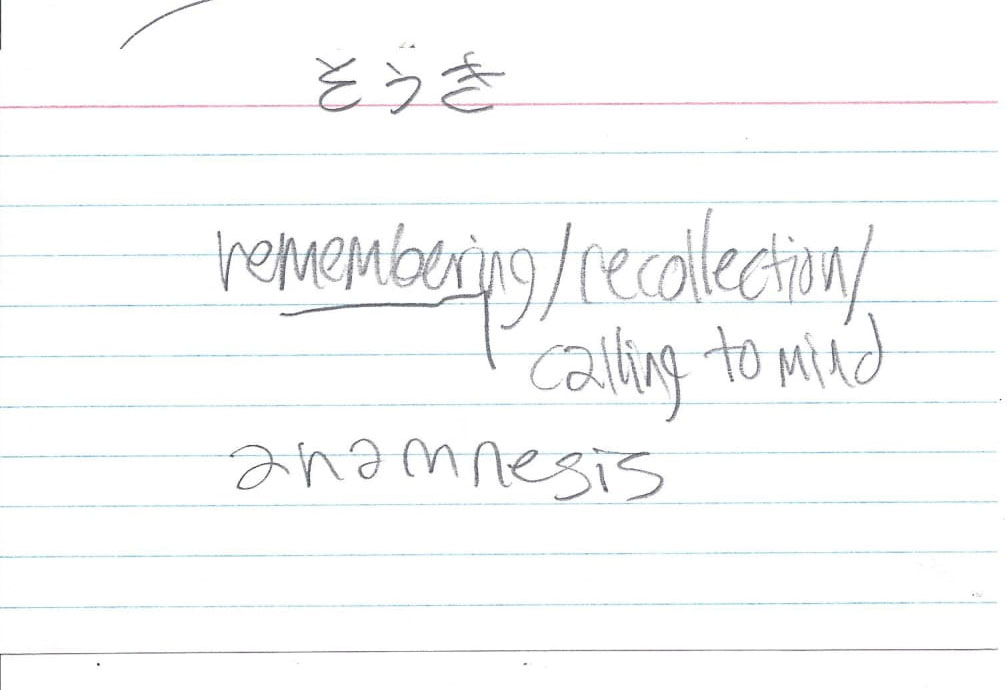 そうき
remembering/recollection/
calling to mind
anamnesis